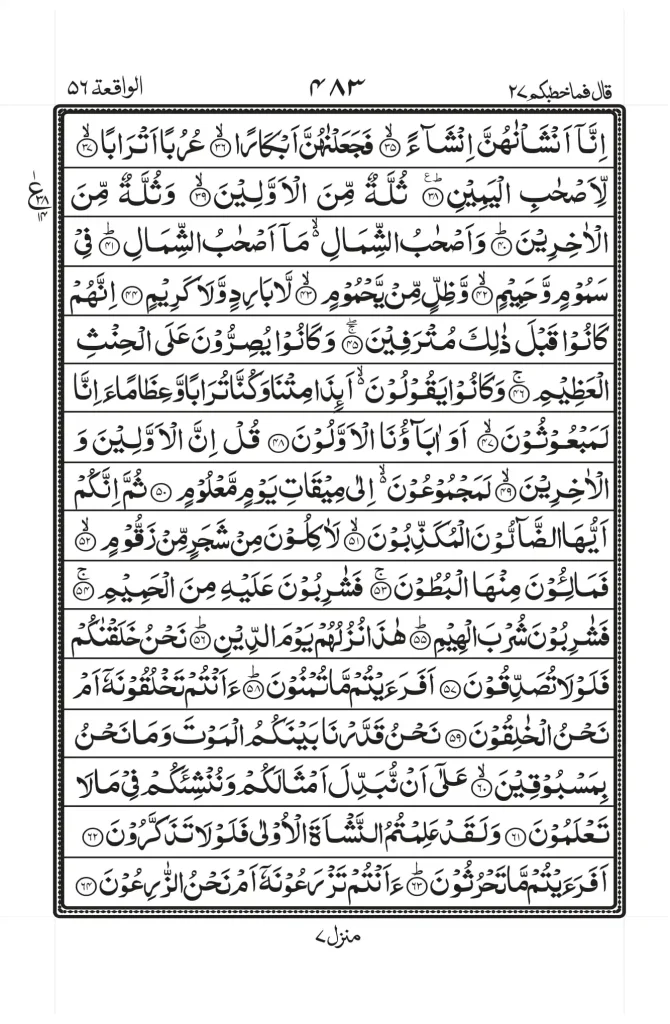 قال فماخطبكم ٢٧
٤٨٣
الواقعة ٥٦
اِنَّاۤ اَنْشَاْنٰهُنَّ اِنْشَآءً ﴿ۙ۳۵﴾ فَجَعَلْنٰهُنَّ اَبْكَارًا ﴿ۙ۳۶﴾ عُرُبًا اَتْرَابًا ﴿ۙ۳۷﴾
لِّاَصْحٰبِ الْيَمِيْنِ ﴿ؕ۳۸﴾ ثُلَّةٌ مِّنَ الْاَوَّلِيْنَ ﴿ۙ۳۹﴾ وَثُلَّةٌ مِّنَ
ع ٣٨ ١٤
الْاٰخِرِيْنَ ﴿ؕ۴۰﴾ وَاَصْحٰبُ الشِّمَالِ ۙ مَاۤ اَصْحٰبُ الشِّمَالِ ﴿ؕ۴۱﴾ فِيْ
سَمُوْمٍ وَّحَمِيْمٍ ﴿ۙ۴۲﴾ وَّظِلٍّ مِّنْ يَّحْمُوْمٍ ﴿ۙ۴۳﴾ لَّا بَارِدٍ وَّلَا كَرِيْمٍ ﴿۴۴﴾ اِنَّهُمْ
كَانُوْا قَبْلَ ذٰلِكَ مُتْرَفِيْنَ ﴿ۚۖ۴۵﴾ وَكَانُوْا يُصِرُّوْنَ عَلَى الْحِنْثِ
الْعَظِيْمِ ﴿ۚ۴۶﴾ وَكَانُوْا يَقُوْلُوْنَ ۙ اَىِٕذَا مِتْنَا وَكُنَّا تُرَابًا وَّعِظَامًا ءَاِنَّا
لَمَبْعُوْثُوْنَ ﴿ۙ۴۷﴾ اَوَاٰبَآؤُنَا الْاَوَّلُوْنَ ﴿۴۸﴾ قُلْ اِنَّ الْاَوَّلِيْنَ وَ
الْاٰخِرِيْنَ ﴿ۙ۴۹﴾ لَمَجْمُوْعُوْنَ ۙ اِلٰى مِيْقَاتِ يَوْمٍ مَّعْلُوْمٍ ﴿۵۰﴾ ثُمَّ اِنَّكُمْ
اَيُّهَا الضَّآلُّوْنَ الْمُكَذِّبُوْنَ ﴿ۙ۵۱﴾ لَاٰكِلُوْنَ مِنْ شَجَرٍ مِّنْ زَقُّوْمٍ ﴿ۙ۵۲﴾
فَمَالِـُٔوْنَ مِنْهَا الْبُطُوْنَ ﴿ۚ۵۳﴾ فَشٰرِبُوْنَ عَلَيْهِ مِنَ الْحَمِيْمِ ﴿ۚ۵۴﴾
فَشٰرِبُوْنَ شُرْبَ الْهِيْمِ ﴿ؕ۵۵﴾ هٰذَا نُزُلُهُمْ يَوْمَ الدِّيْنِ ﴿ؕ۵۶﴾ نَحْنُ خَلَقْنٰكُمْ
فَلَوْلَا تُصَدِّقُوْنَ ﴿۵۷﴾ اَفَرَءَيْتُمْ مَّا تُمْنُوْنَ ﴿ؕ۵۸﴾ ءَاَنْتُمْ تَخْلُقُوْنَهٗۤ اَمْ
نَحْنُ الْخٰلِقُوْنَ ﴿۵۹﴾ نَحْنُ قَدَّرْنَا بَيْنَكُمُ الْمَوْتَ وَمَا نَحْنُ
بِمَسْبُوْقِيْنَ ﴿ۙ۶۰﴾ عَلٰۤى اَنْ نُّبَدِّلَ اَمْثَالَكُمْ وَنُنْشِئَكُمْ فِيْ مَا لَا
تَعْلَمُوْنَ ﴿۶۱﴾ وَلَقَدْ عَلِمْتُمُ النَّشْاَةَ الْاُوْلٰى فَلَوْلَا تَذَكَّرُوْنَ ﴿۶۲﴾
اَفَرَءَيْتُمْ مَّا تَحْرُثُوْنَ ﴿ؕ۶۳﴾ ءَاَنْتُمْ تَزْرَعُوْنَهٗۤ اَمْ نَحْنُ الزّٰرِعُوْنَ ﴿۶۴﴾
منزل ٧